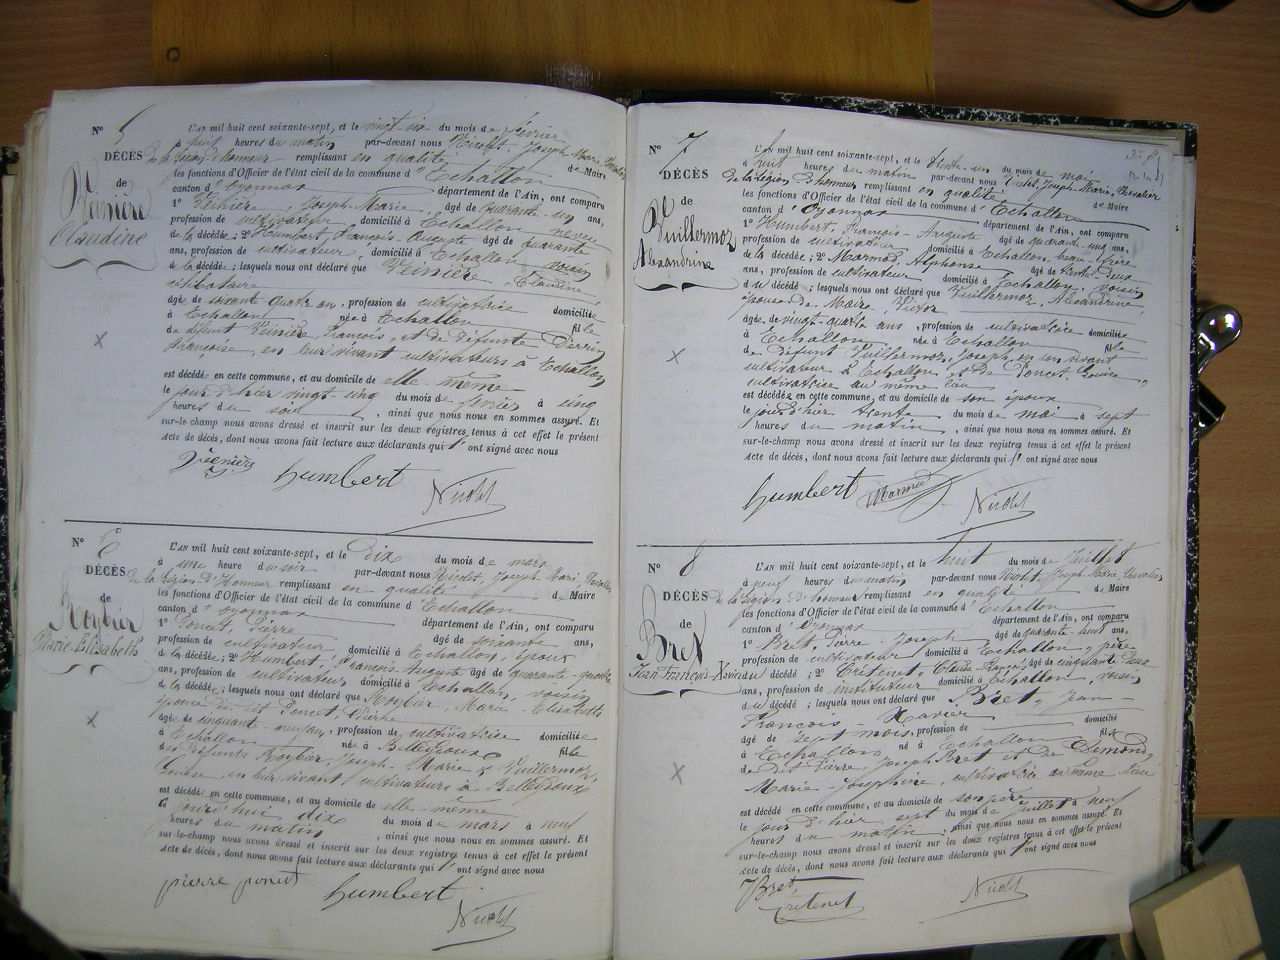 N° 5
DÉCÈS
de
Veinière
Claudine
L'AN mil huit cent soixante-sept, et le vingt-six du mois de février
à huit heures du matin par-devant nous Nicolet, Joseph Marie, Chevalier
de la Légion d'Honneur remplissant en qualité de Maire
les fonctions d'Officier de l'état civil de la commune d'Echallon
canton d'Oyonnax département de l'Ain, ont comparu
1° Veinière Joseph-Marie âgé de quarante-un ans,
profession de cultivateur domicilié à Echallon neveu
de la décédée ; 2° Humbert, François-Auguste âgé de quarante
ans, profession de cultivateur, domicilié à Echallon voisin
de la décédée ; lesquels nous ont déclaré que Veinière Claudine,
célibataire
âgée de soixante quatre ans, profession de cultivatrice domiciliée
à Echallon née à Echallon fille
de défunt Veinière, François, et de défunte Perrin
françoise, en leur vivant cultivateurs à Echallon
est décédée en cette commune, et au domicile de elle-même
le jour d'hier vingt cinq du mois de février à cinq
heures du soir, ainsi que nous nous en sommes assuré. Et
sur-le-champ nous avons dressé et inscrit sur les deux registres tenus à cet effet le présent
acte de décès, dont nous avons fait lecture aux déclarants qui l'ont signé avec nous
Veinière Humbert Nicolet
N° 6
DÉCÈS
de
Roybier
Marie-Elisabeth
L'AN mil huit cent soixante-sept, et le dix du mois de mars
à une heure du soir par-devant nous Nicolet, Joseph Marie, Chevalier
de la Légion-D'Honneur remplissant en qualité de Maire
les fonctions d'Officier de l'état civil de la commune d'Echallon
canton d'Oyonnax département de l'Ain, ont comparu
1° Poncet, Pierre âgé de soixante ans,
profession de cultivateur domicilié à Echallon, époux
de la décédée ; 2° Humbert, François Auguste âgé de quarante-quatre
ans, profession de cultivateur domicilié à Echallon, voisin
de la décédée ; lesquels nous ont déclaré que Roybier, Marie-Elisabeth
épouse du dit Poncet, Pierre
âgée de cinquante-neuf ans, profession de cultivatrice domiciliée
à Echallon née à Belleydoux fille
des défunts Roybier, Joseph-Marie & Vuillermoz,
en leur vivant cultivateurs à Belleydoux
est décédée en cette commune, et au domicile de elle-même
le jourd'hui dix du mois de mars à neuf
heures du matin, ainsi que nous nous en sommes assuré. Et
sur-le-champ nous avons dressé et inscrit sur les deux registres tenus à cet effet le présent
acte de décès, dont nous avons fait lecture aux déclarants qui l'ont signé avec nous
pierre poncet Humbert Nicolet
N° 7
DÉCÈS
de
Vuillermoz
Alexandrine
L'AN mil huit cent soixante-sept, et le trente-un du mois de mai
à huit heures du matin par-devant nous Nicolet, Joseph-Marie, Chevalier
de la Légion D'honneur remplissant en qualité de Maire
les fonctions d'Officier de l'état civil de la commune d'Echallon
canton d'Oyonnax département de l'Ain, ont comparu
1° Humbert, François-Auguste âgé de quarante-cinq ans,
profession de cultivateur domicilié à Echallon, beau-père
de la décédée ; 2° Mermod, Alphonse âgé de trente-deux
ans, profession de cultivateur domicilié à Echallon, voisin
de décédé ; lesquels nous ont déclaré que Vuillermoz, Alexandrine,
épouse de Maire, Victor
âgée de vingt-quatre ans, profession de cultivatrice domiciliée
à Echallon née à Echallon fille
de Défunt Vuillermoz, Joseph, en son vivant
cultivateur à Echallon, et de Poncet, Louise
cultivatrice au même lieu
est décédée en cette commune, et au domicile de son époux
le jour d'hier trente du mois de mai à sept
heures du matin, ainsi que nous nous en sommes assuré. Et
sur-le-champ nous avons dressé et inscrit sur les deux registres tenus à cet effet le présent
acte de décès, dont nous avons fait lecture aux déclarants qui l'ont signé avec nous
Humbert Mermod Nicolet
N° 8
DÉCÈS
de
Bret
Jean François Xavier
L'AN mil huit cent soixante-sept, et le huit du mois de Juillet
à neuf heures du matin par-devant nous Nicolet Joseph Marie Chevalier
de la Légion D'honneur remplissant en qualité de Maire
les fonctions d'Officier de l'état civil de la commune d'Echallon
canton d'Oyonnax département de l'Ain, ont comparu
1° Bret, Pierre-Joseph âgé de quarante-huit ans,
profession de cultivateur domicilié à Echallon, père
du décédé ; 2° Crétenet, Claude François âgé de cinquante deux
ans, profession de instituteur domicilié à Echallon, voisin
du décédé ; lesquels nous ont déclaré que Bret, Jean
François-Xavier domicilié
âgé de sept mois, profession de
à Echallon né à Echallon fils
de dit Pierre Joseph Bret et de Edmond,
Marie-Joséphine, cultivatrice au même lieu
est décédé en cette commune, et au domicile de son père
le jour d'hier sept du mois de Juillet à neuf
heures du matin, ainsi que nous nous en sommes assuré. Et
sur-le-champ nous avons dressé et inscrit sur les deux registres tenus à cet effet le présent
acte de décès, dont nous avons fait lecture aux déclarants qui l'ont signé avec nous
Bret Crétenet Nicolet